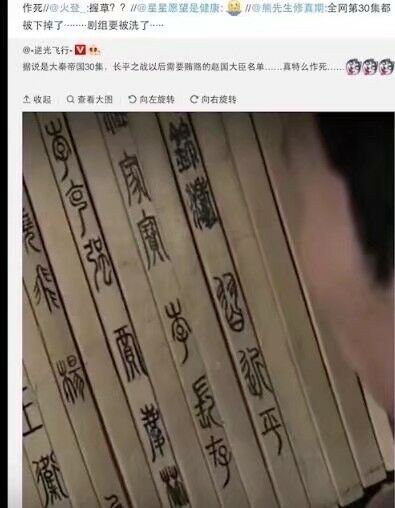 作死//@火登_:握草？？//@星星愿望是健康: //@熊先生修真期:全网第30集都
被下掉了········剧组要被洗了·····
@-逆光飞行-
据说是大秦帝国30集，长平之战以后需要贿赂的赵国大臣名单……真特么作死……
收起 查看大图 向左旋转 向右旋转
錦濤
習近平
家寶
李長
李 强
賈 林
楊
王